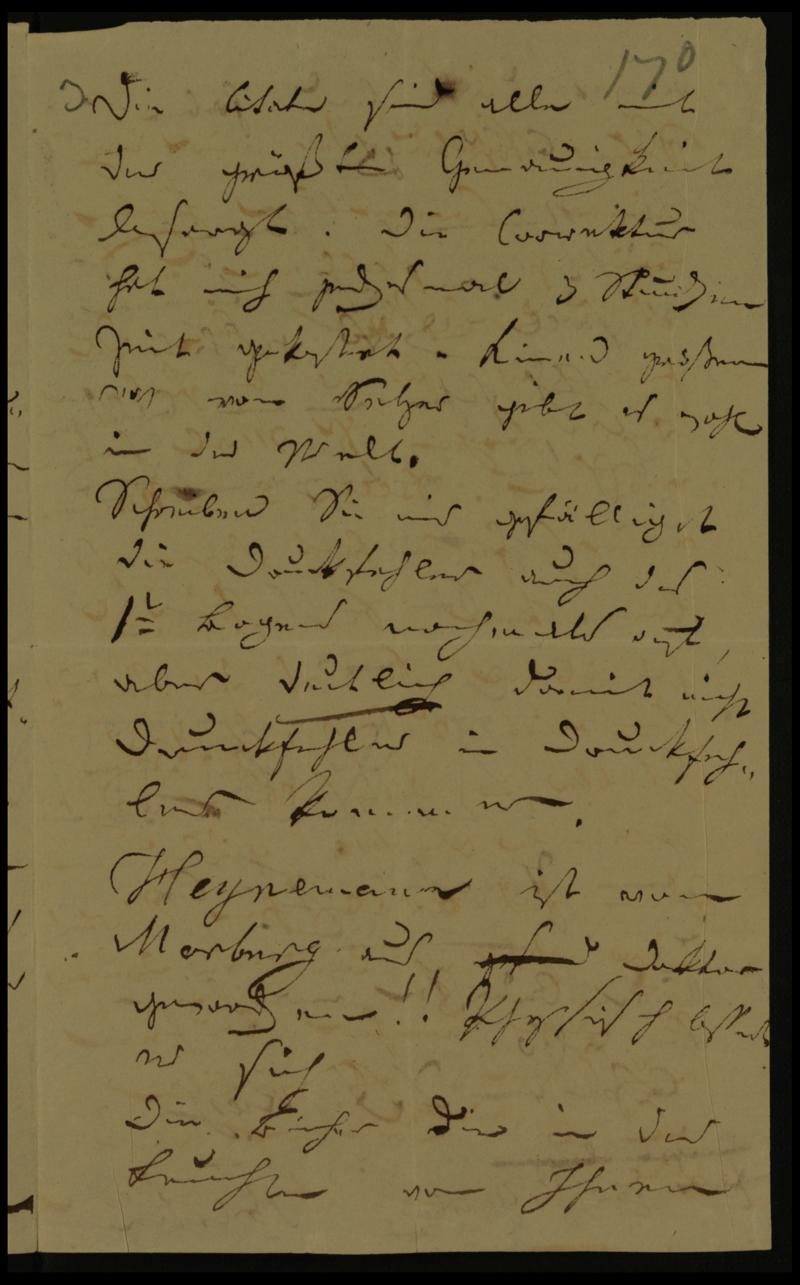 170
Die Citate sind alle mit
der größten Genauigkeit
besorgt. Die Correktur
hat mich jedesmal 3 Stunden
Zeit gekostet. Einen größern
von Setzer gibt es nicht
in der Welt.
Schreiben Sie mir gefälligst
die Druckfehler auch des
1t Bogens nochmals auf,
aber deutlich damit nicht
Druckfehler in Druckfeh-
lern kommen.
Heynemann ist von
Marburg aus Doktor
geworden!! Physisch bessert
er sich
Die Bücher die in der
von Ihnen